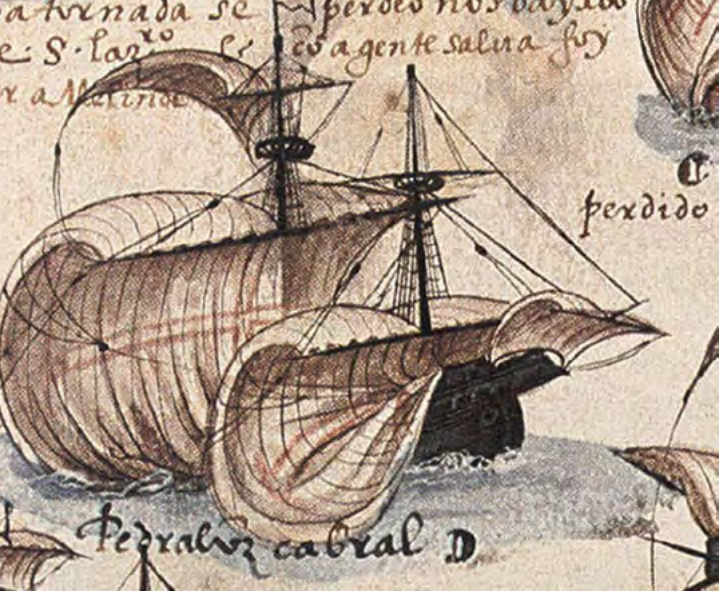 a tornada se perdeo nos bayxos
e S. lazro co a gente salva foy
r a Melinde
perdido
Pedralvrz cabral D